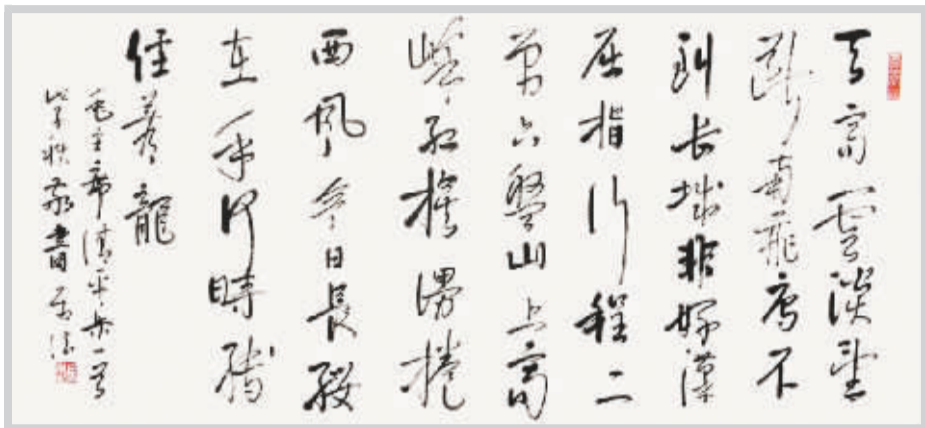 天高雲淡望
断南飛雁不
到长城非好漢
屈指行程二
萬六盤山上高
峰红旗漫捲
西風今日長缨
在手何時缚
住蒼龍
毛主席清平乐一首
秋敬書